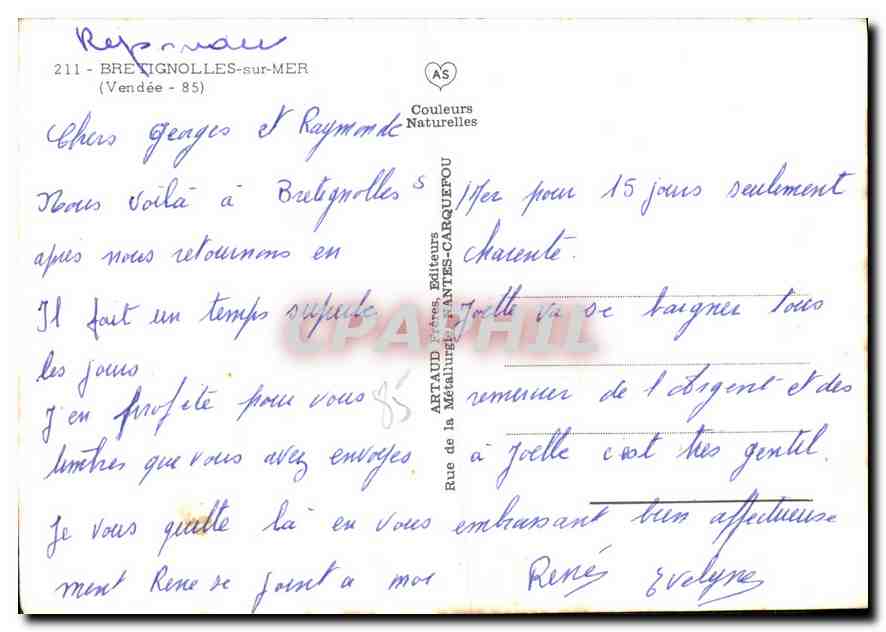 Repondu
211 - BRETIGNOLLES-sur-MER
(Vendée - 85)
AS
Couleurs
Naturelles
ARTAUD Frères, Editeurs
Rue de la Métallurgie NANTES-CARQUEFOU
Chers Georges et Raymonde
Nous voilà à Bretignolles s/Mer pour 15 jours seulement
après nous retournons en Charente.
Il fait un temps superbe Joelle va se baigner tous
les jours
J'en profite pour vous remercier de l'Argent et des
timbres que vous avez envoyes à Joelle c'est très gentil.
Je vous quitte là en vous embrassant bien affectueuse
ment Rene se joint a moi René Evelyne
85
CPAPHIL